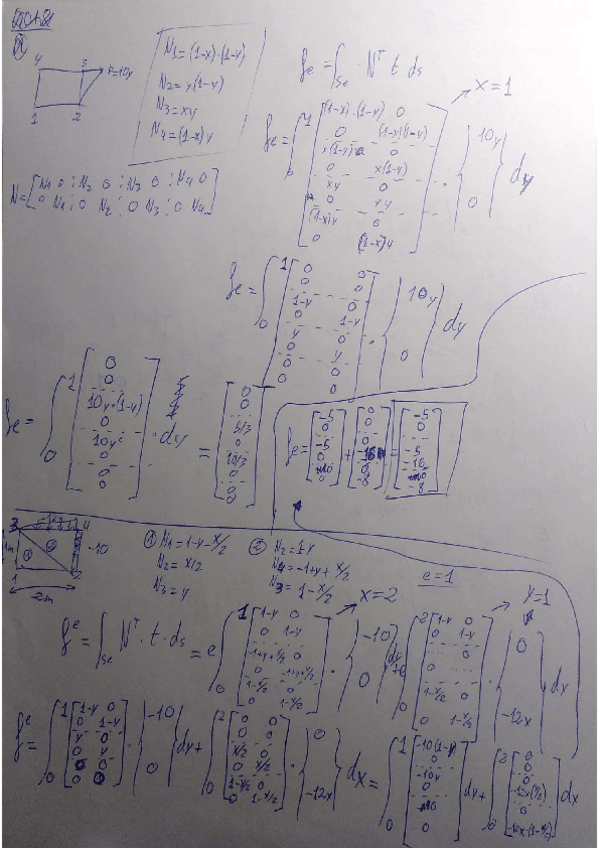 4 3 P=10y
1 2
N₁ = (1-x)·(1-y)
N₂ = x(1-y)
N₃ = xy
N₄ = (1-x)y
N = [N₁ 0 ⋮ N₂ 0 ⋮ N₃ 0 ⋮ N₄ 0
0 N₁ ⋮ 0 N₂ ⋮ 0 N₃ ⋮ 0 N₄]
fe = ∫Se Nᵀ t ds
→ x=1
fe = ∫₀¹ [(1-x)·(1-y) 0
0 (1-x)(1-y)
x(1-y) 0
0 x(1-y)
xy 0
0 xy
(1-x)y 0
0 (1-x)y] · {10y
0} dy
fe = ∫₀¹ [0 0
0 0
1-y 0
0 1-y
y 0
0 y
0 0
0 0] · {10y
0} dy
fe = ∫₀¹ [0
0
10y·(1-y)
0
10y²
0
0
0] · dy = [0
0
5/3
0
10/3
0
0
0]
fe = [-5
0
-5
0
0] + [0
0
0
-16
0
-8] = [-5
0
-5
-16
0
-8]
3 4
-10
1m
1 2
2m
① N₁ = 1-y-x/2
N₂ = x/2
N₃ = y
② N₂ = 1-y
N₄ = -1+y+x/2
N₃ = 1-x/2
e=1
fᵉ = ∫Se Nᵀ·t·ds = e ∫₀¹ [1-y 0
0 1-y
-1+y+x/2 0
0 -1+y+x/2
1-x/2 0
0 1-x/2] · {-10
0} dy
→ x=2
+e ∫₀² [1-y 0
0 1-y
1-x/2 0
0 1-x/2] · {0
-12x} dx
→ y=1
fᵉ = ∫₀¹ [1-y 0
0 1-y
y 0
0 y
0 0
0 0] · {-10
0} dy + ∫₀² [0 0
0 0
x/2 0
0 x/2
1-x/2 0
0 1-x/2] · {0
-12x} dx = ∫₀¹ [-10(1-y)
0
-10y
0
0] dy + ∫₀² [0
0
0
-12x(x/2)
0
-12x·(1-x/2)] dx